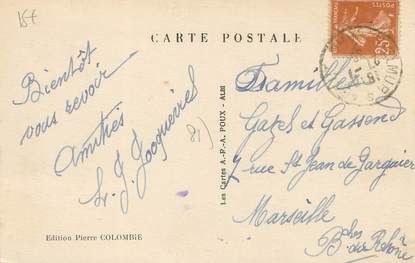 15€
CARTE POSTALE
25c
Bientôt
vous revoir
Amitiés
L. J. Jacqueirel
81)
Les Cartes A.-P.-A. POUX - ALBI
Famille
Gazel et Gassend
7 rue St Jean de Garguier
Marseille
B.ches du Rhône
Edition Pierre COLOMBIÉ